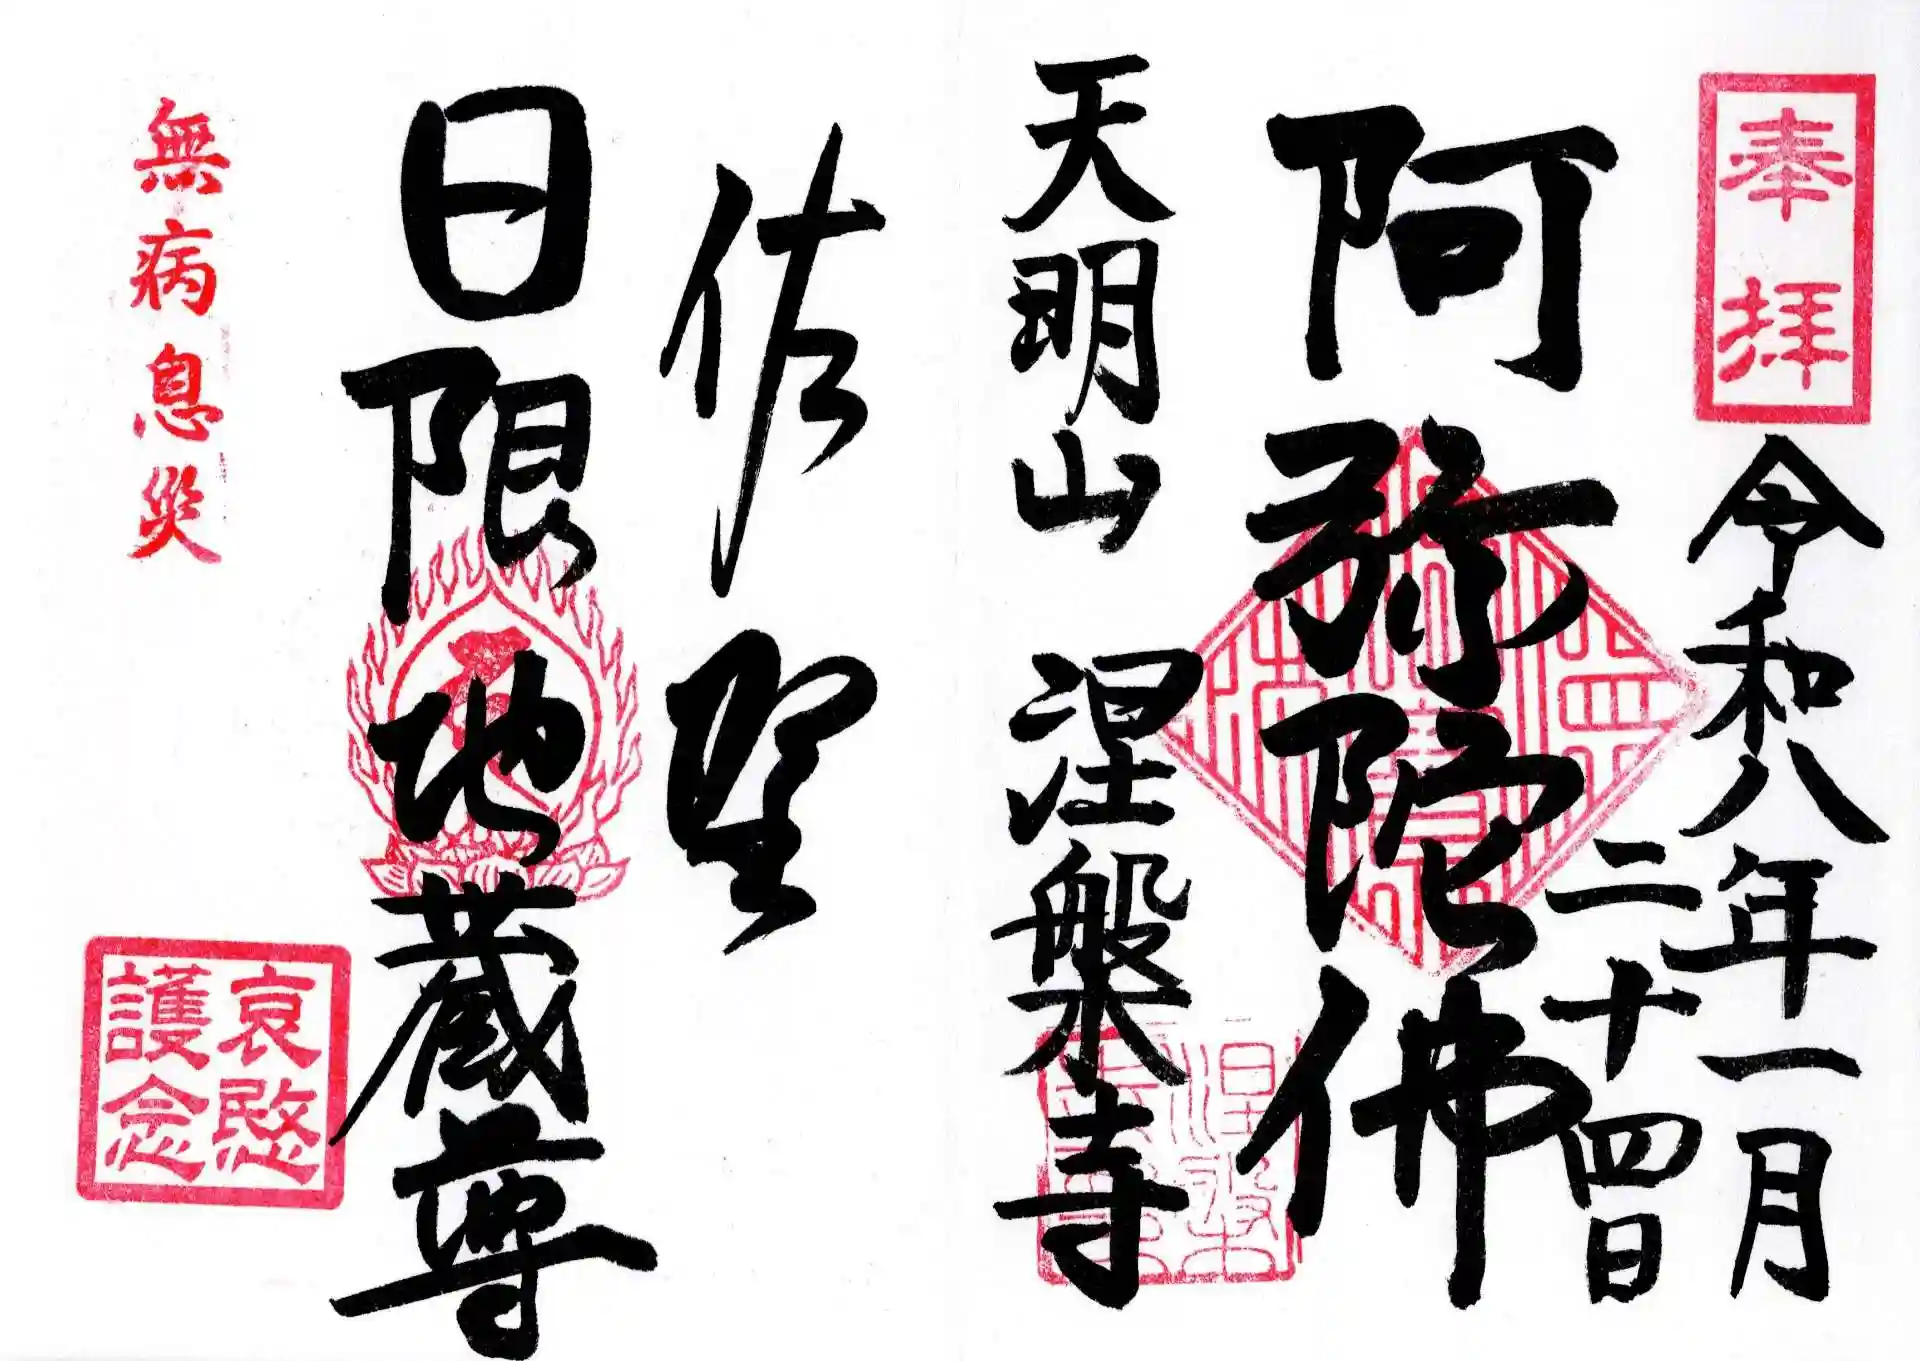 奉拝
令和八年一月
二十四日
阿弥陀佛
天明山 涅槃寺
佐賀
日限地蔵尊
無病息災
哀愍
護念